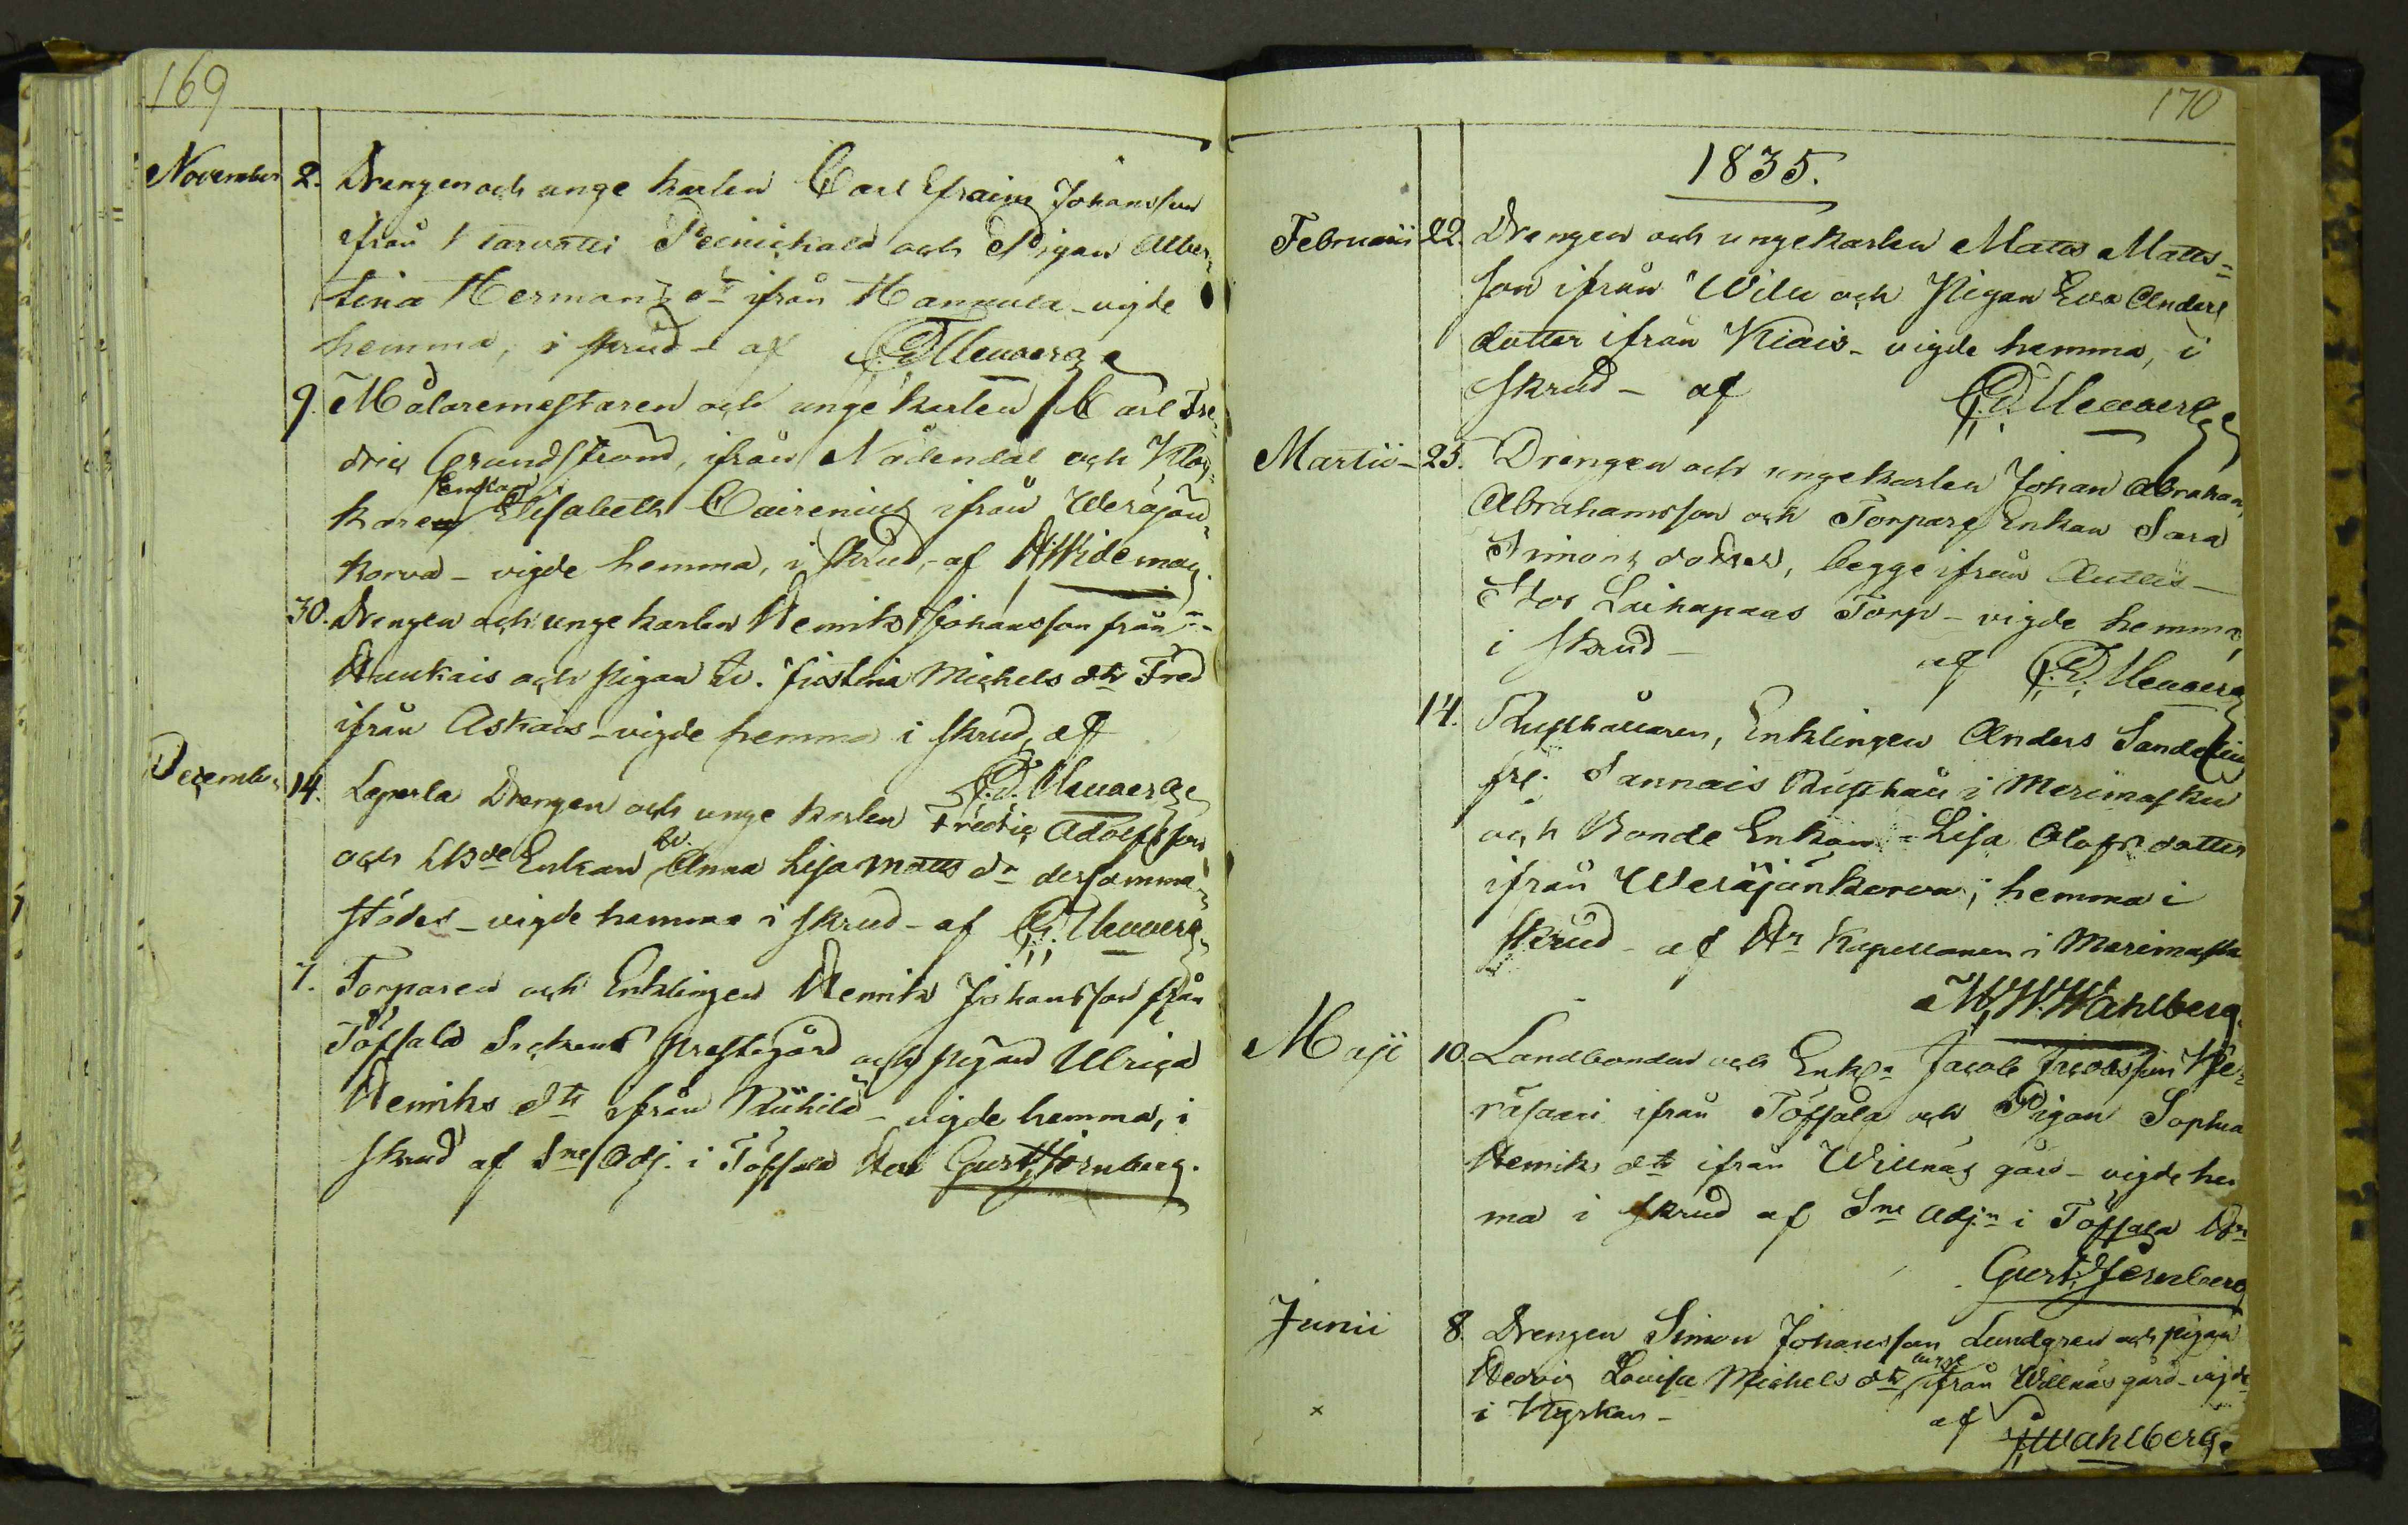 169
November 2. Drengen och unge karlen Carl Efraim Johansson
ifrån Karvatti och Pigan Alber¬
tina Hermans dr ifrån Hannula - vigde
hemma, i skrud - af
9. Målaremestaren och unge karlen Carl Fre¬
dric Grundstrand, ifrån Nådendal och Kloc¬
kare Enkan Elisabeth Cairenius ifrån Weräjän¬
korva - vigde hemma, i skrud, - af Wideman.
30. Drengen och unge karlen Henrik Johansson från
Haukais och pigan Justina Michels dtr Fred
ifrån Askais - vigde hemma i skrud, af
December 14. Leperla Drengen och unge karlen Fredric Adolfsson
och Enkan Anna Lisa Matts dr dersamma¬
städes - vigde hemma i skrud - af
7. Torparen och Enklingen Henrik Johansson från
Töfsala Sockens Prestegård och pigan Ulrica
Henriks dtr ifrån - vigde hemma, i
skrud af Sne Adj. i Töfsala Herr Gust. Hjernberg.
170
1835.
Februarii 22. Drengen och ungekarlen Matts Matts¬
son ifrån Wilu och Pigan Eva Anders
dotter ifrån Kiais - vigde hemma, i
skrud - af
Martii - 25. Drengen och ungekarlen Johan Abraham
Abrahamsson och Torpare Enkan Sara
Simons dotter, begge ifrån Autis -
Stor Laihapaas Torp - vigde hemma,
i skrud - af
14. Rusthållaren, Enklingen Anders Sandelin
Sannais Rusthåll i Merimasku
och Bonde Enkan - Lisa Olofs dotter
ifrån Weräjänkorva; hemma i
skrud - af Hr Kapellanen i Merimasku
Wahlberg.
Maji 10. Landbonden och Enkl. Jacob Jacobsson
ifrån Töfsala och Pigan Sophia
Henriks dtr ifrån Willnäs gård - vigde hem
ma i skrud af Sne Adj:n i Töfsala Hr
Gust. Hjernberg
Junii 8. Drengen Simon Johansson Lundgren och pigan
Hedvig Lovisa Michels dtr begge ifrån Willnäs gård - vigde
x i Kyrkan - af
Wahlberg.